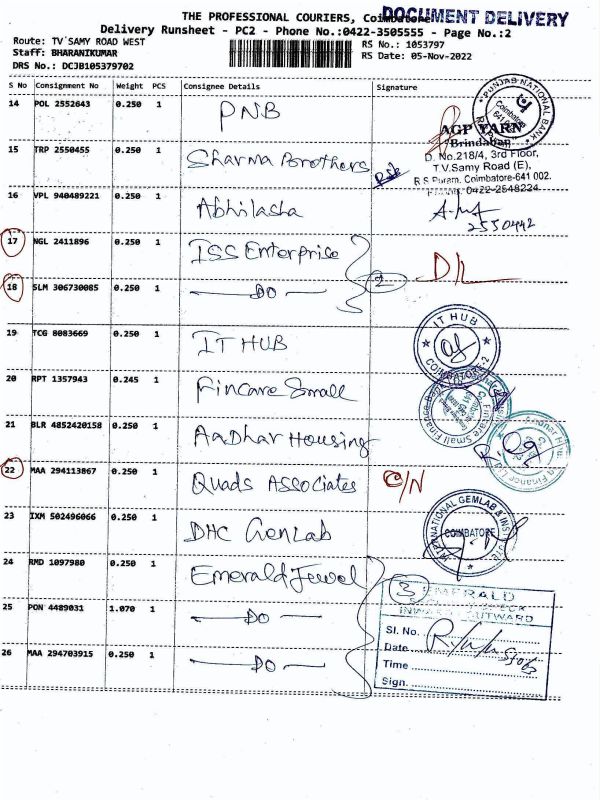 THE PROFESSIONAL COURIERS, Coimbatore
DOCUMENT DELIVERY
Delivery Runsheet - PC2 - Phone No.:0422-3505555 - Page No.:2
Route: TV`SAMY ROAD WEST
RS No.: 1053797
Staff: BHARANIKUMAR
RS Date: 05-Nov-2022
DRS No.: DCJB105379702
S No Consignment No Weight PCS Consignee Details Signature
14 POL 2552643 0.250 1 PNB
PUNJAB NATIONAL BANK
Coimbatore
AGP YARN
Brindaban
15 TRP 2550455 0.250 1 Sharma Brothers
D. No.218/4, 3rd Floor,
T.V.Samy Road (E),
R.S.Puram, Coimbatore-641 002.
0422-2548224
16 VPL 940489221 0.250 1 Abhilasha
2550442
17 NGL 2411896 0.250 1 ISS Enterprise
2 DL
18 SLM 306730085 0.250 1 DO
19 TCG 8083669 0.250 1 IT HUB
IT HUB
COIMBATORE-2
20 RPT 1357943 0.245 1 Fincare Small
Fincare Small Finance Bank
21 BLR 4852420158 0.250 1 Aadhar Housing
22 MAA 294113867 0.250 1 Quads Associates C/N
23 IXM 502496066 0.250 1 DHC GemLab
INTERNATIONAL GEMLAB & INSTITUTE
COIMBATORE
24 RMD 1097980 0.250 1 Emerald Jewel
3 EMERALD
INWARD / OUTWARD
25 PON 4489031 1.070 1 DO
Sl. No.
Date
26 MAA 294703915 0.250 1 DO
Time
Sign.